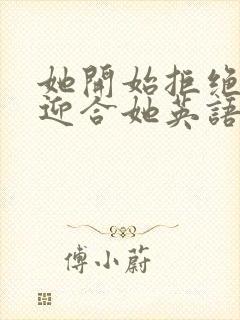 她開始拒絕
迎合她英語
傅小蔚